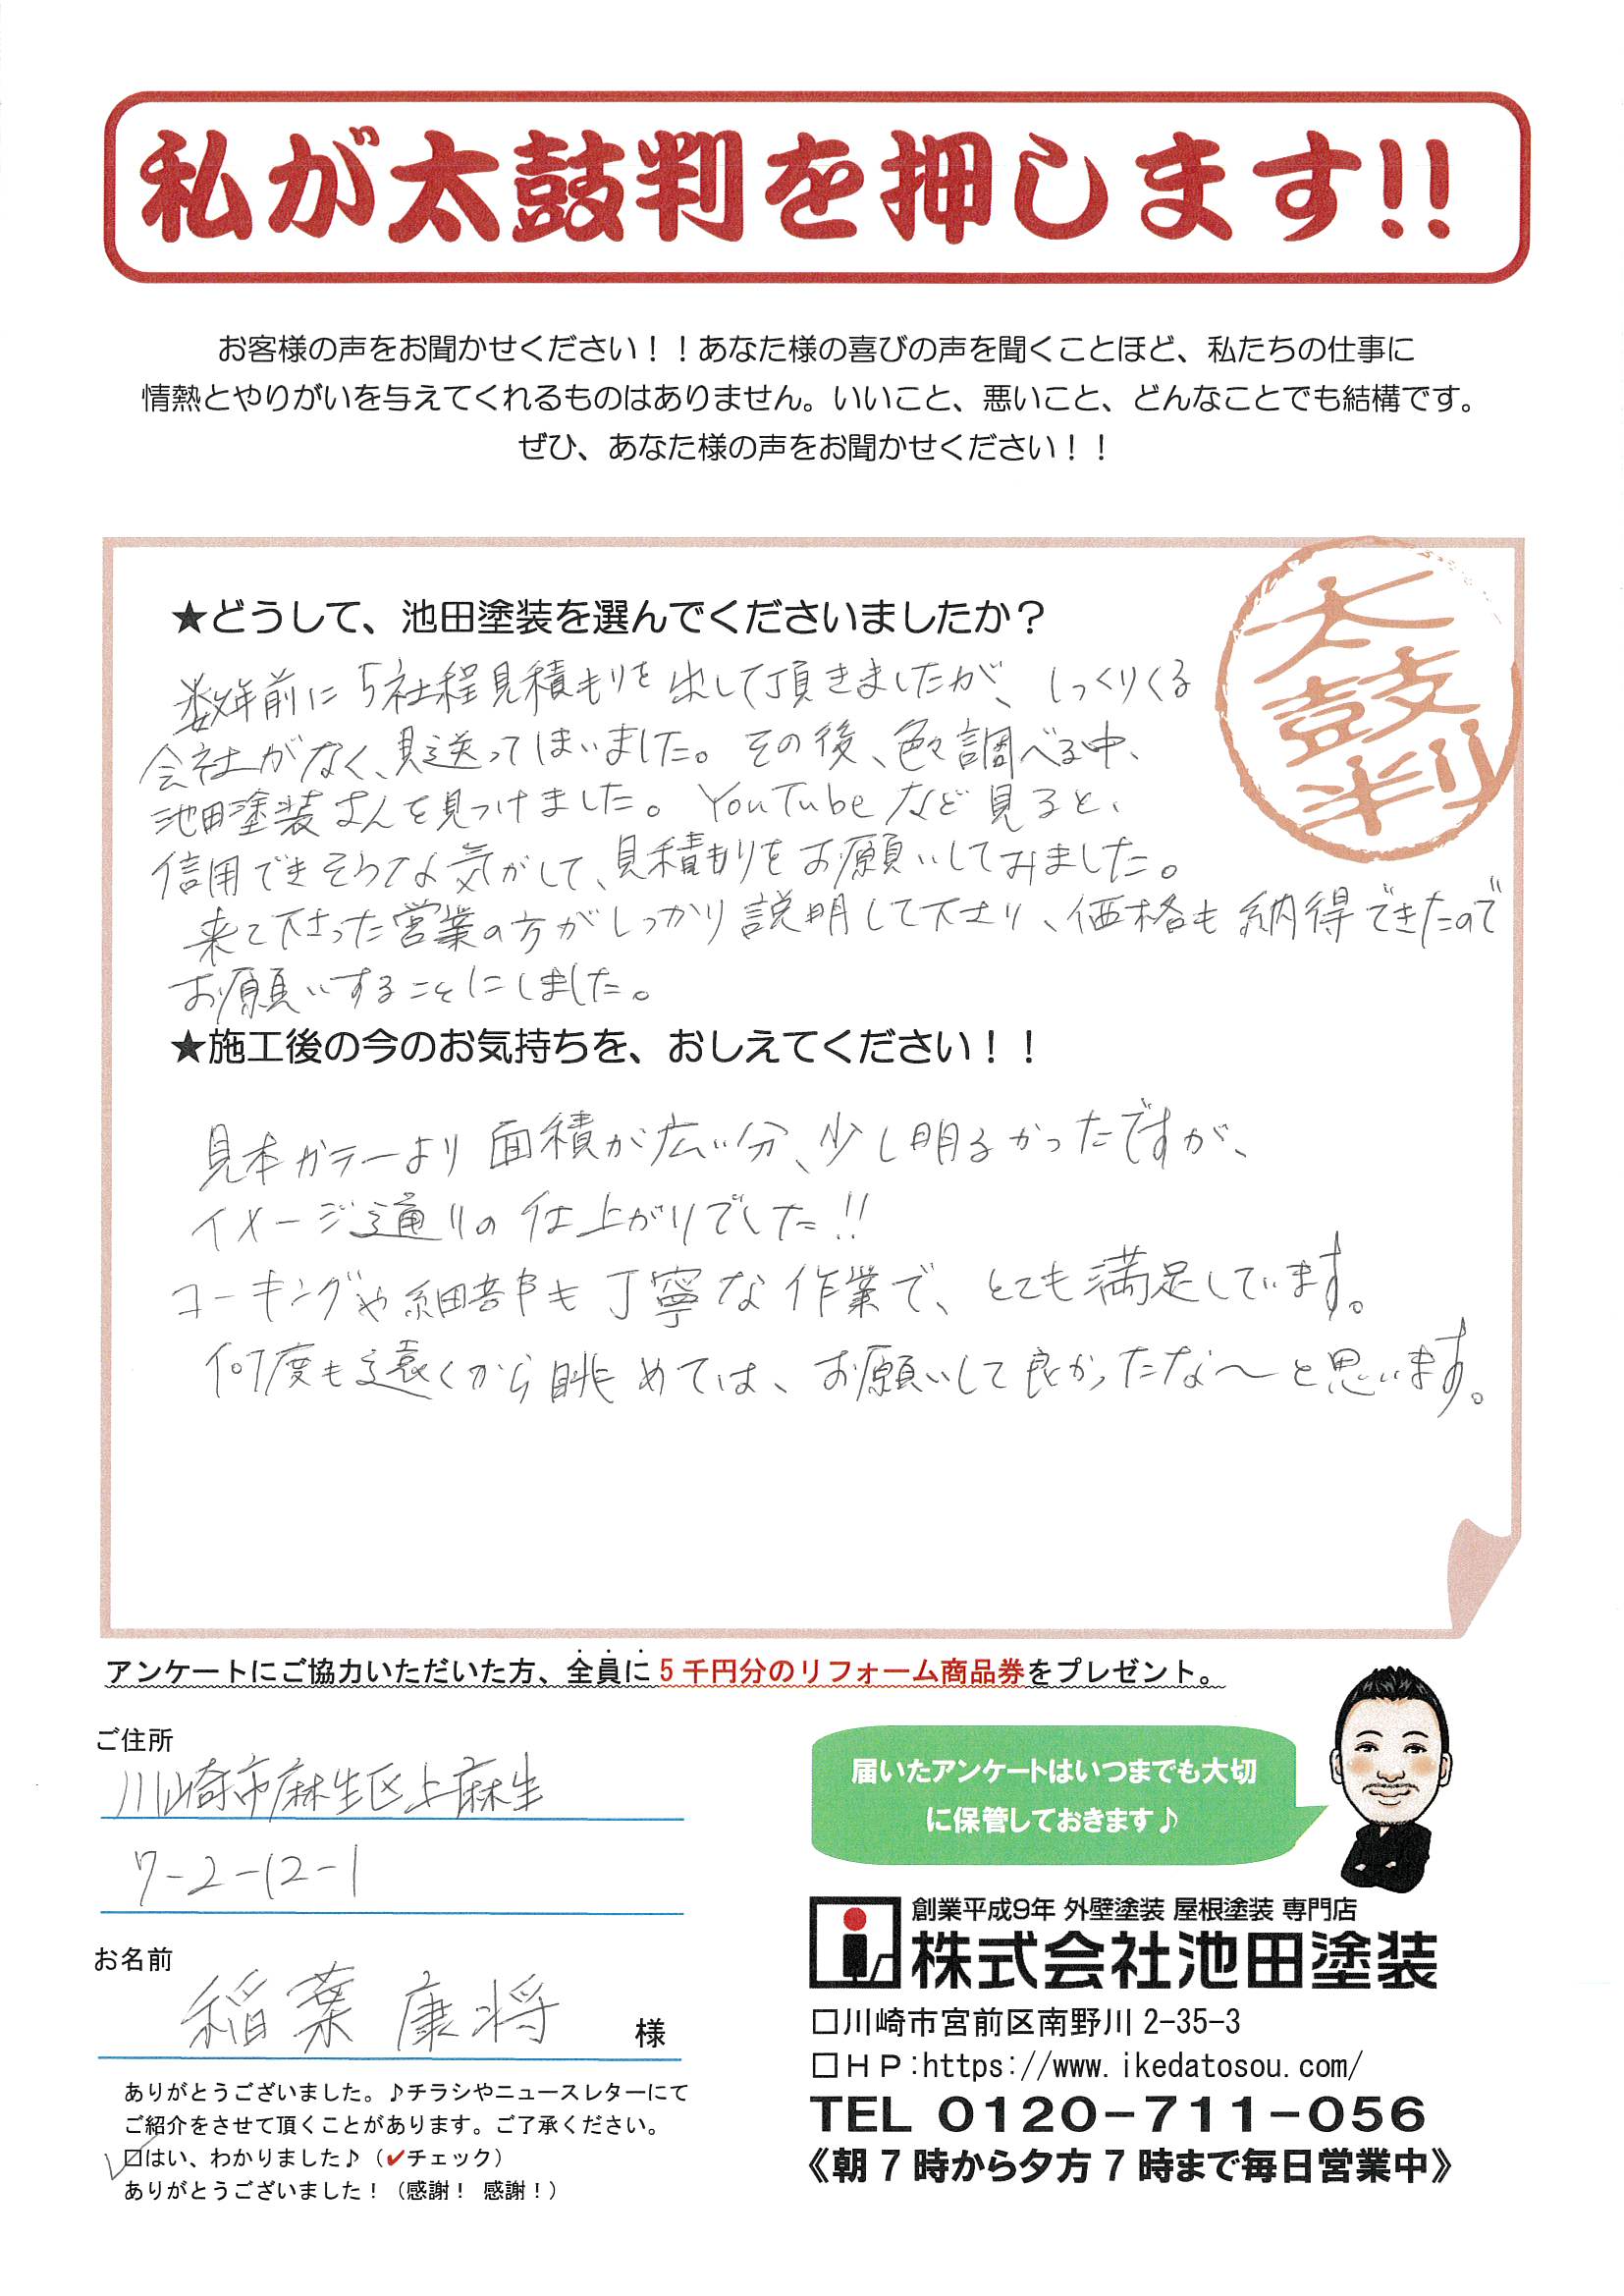 私が太鼓判を押します!!
お客様の声をお聞かせください！！あなた様の喜びの声を聞くことほど、私たちの仕事に
情熱とやりがいを与えてくれるものはありません。いいこと、悪いこと、どんなことでも結構です。
ぜひ、あなた様の声をお聞かせください！！
太鼓判
★どうして、池田塗装を選んでくださいましたか？
数年前に5社程見積もりを出して頂きましたが、しっくりくる
会社がなく、見送ってしまいました。その後、色々調べる中、
池田塗装さんを見つけました。YouTubeなど見ると、
信用できそうな気がして、見積もりをお願いしてみました。
来て下さった営業の方がしっかり説明して下さり、価格も納得できたので
お願いすることにしました。
★施工後の今のお気持ちを、おしえてください！！
見本カラーより面積が広い分、少し明るかったですが、
イメージ通りの仕上がりでした!!
コーキングや細部も丁寧な作業で、とても満足しています。
何度も遠くから眺めては、お願いして良かったな〜と思います。
アンケートにご協力いただいた方、全員に5千円分のリフォーム商品券をプレゼント。
ご住所
川崎市麻生区上麻生
7-2-12-1
お名前
稲葉 康将 様
ありがとうございました。♪チラシやニュースレターにて
ご紹介をさせて頂くことがあります。ご了承ください。
□はい、わかりました♪（✔チェック）
ありがとうございました！（感謝！ 感謝！）
届いたアンケートはいつまでも大切
に保管しておきます♪
創業平成9年 外壁塗装 屋根塗装 専門店
株式会社池田塗装
□川崎市宮前区南野川2-35-3
□ＨＰ:https://www.ikedatosou.com/
TEL 0120-711-056
《朝7時から夕方7時まで毎日営業中》